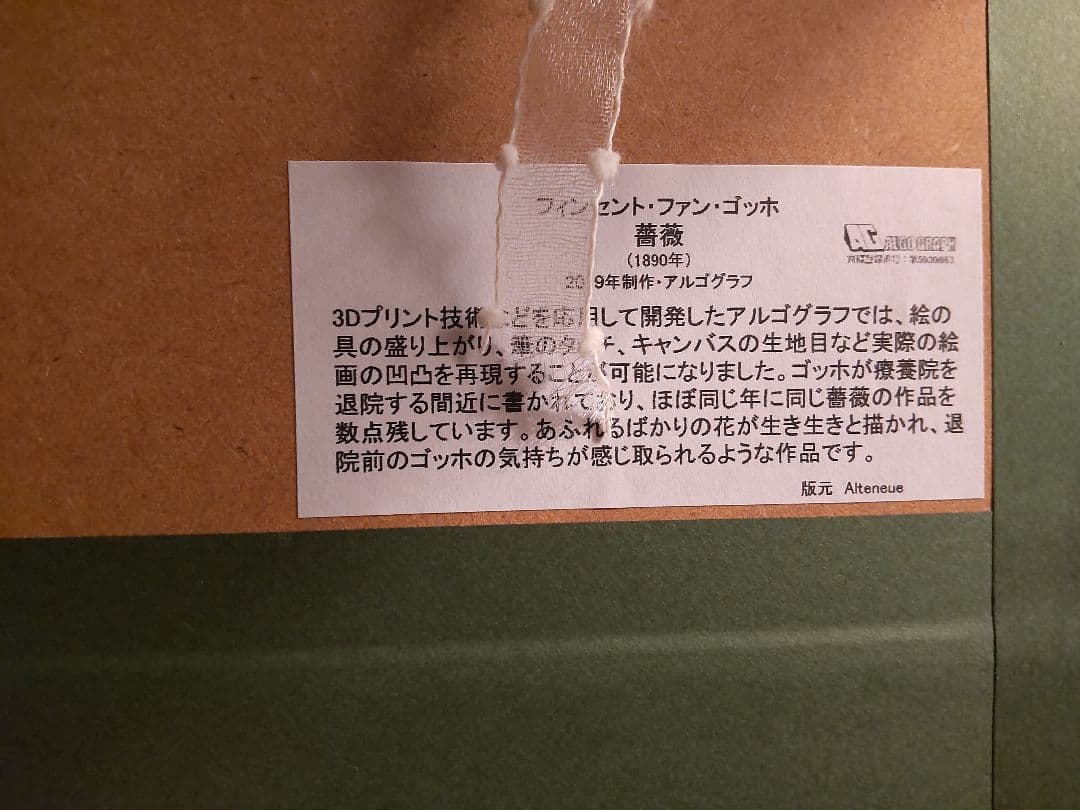 フィンセント・ファン・ゴッホ
薔薇
(1890年)
ALGOGRAPH
2019年制作・アルゴグラフ
3Dプリント技術などを応用して開発したアルゴグラフでは、絵の
具の盛り上がり、筆のタッチ、キャンバスの生地目など実際の絵
画の凹凸を再現することが可能になりました。ゴッホが療養院を
退院する間近に書かれており、ほぼ同じ年に同じ薔薇の作品を
数点残しています。あふれるばかりの花が生き生きと描かれ、退
院前のゴッホの気持ちが感じ取られるような作品です。
版元 Alteneue